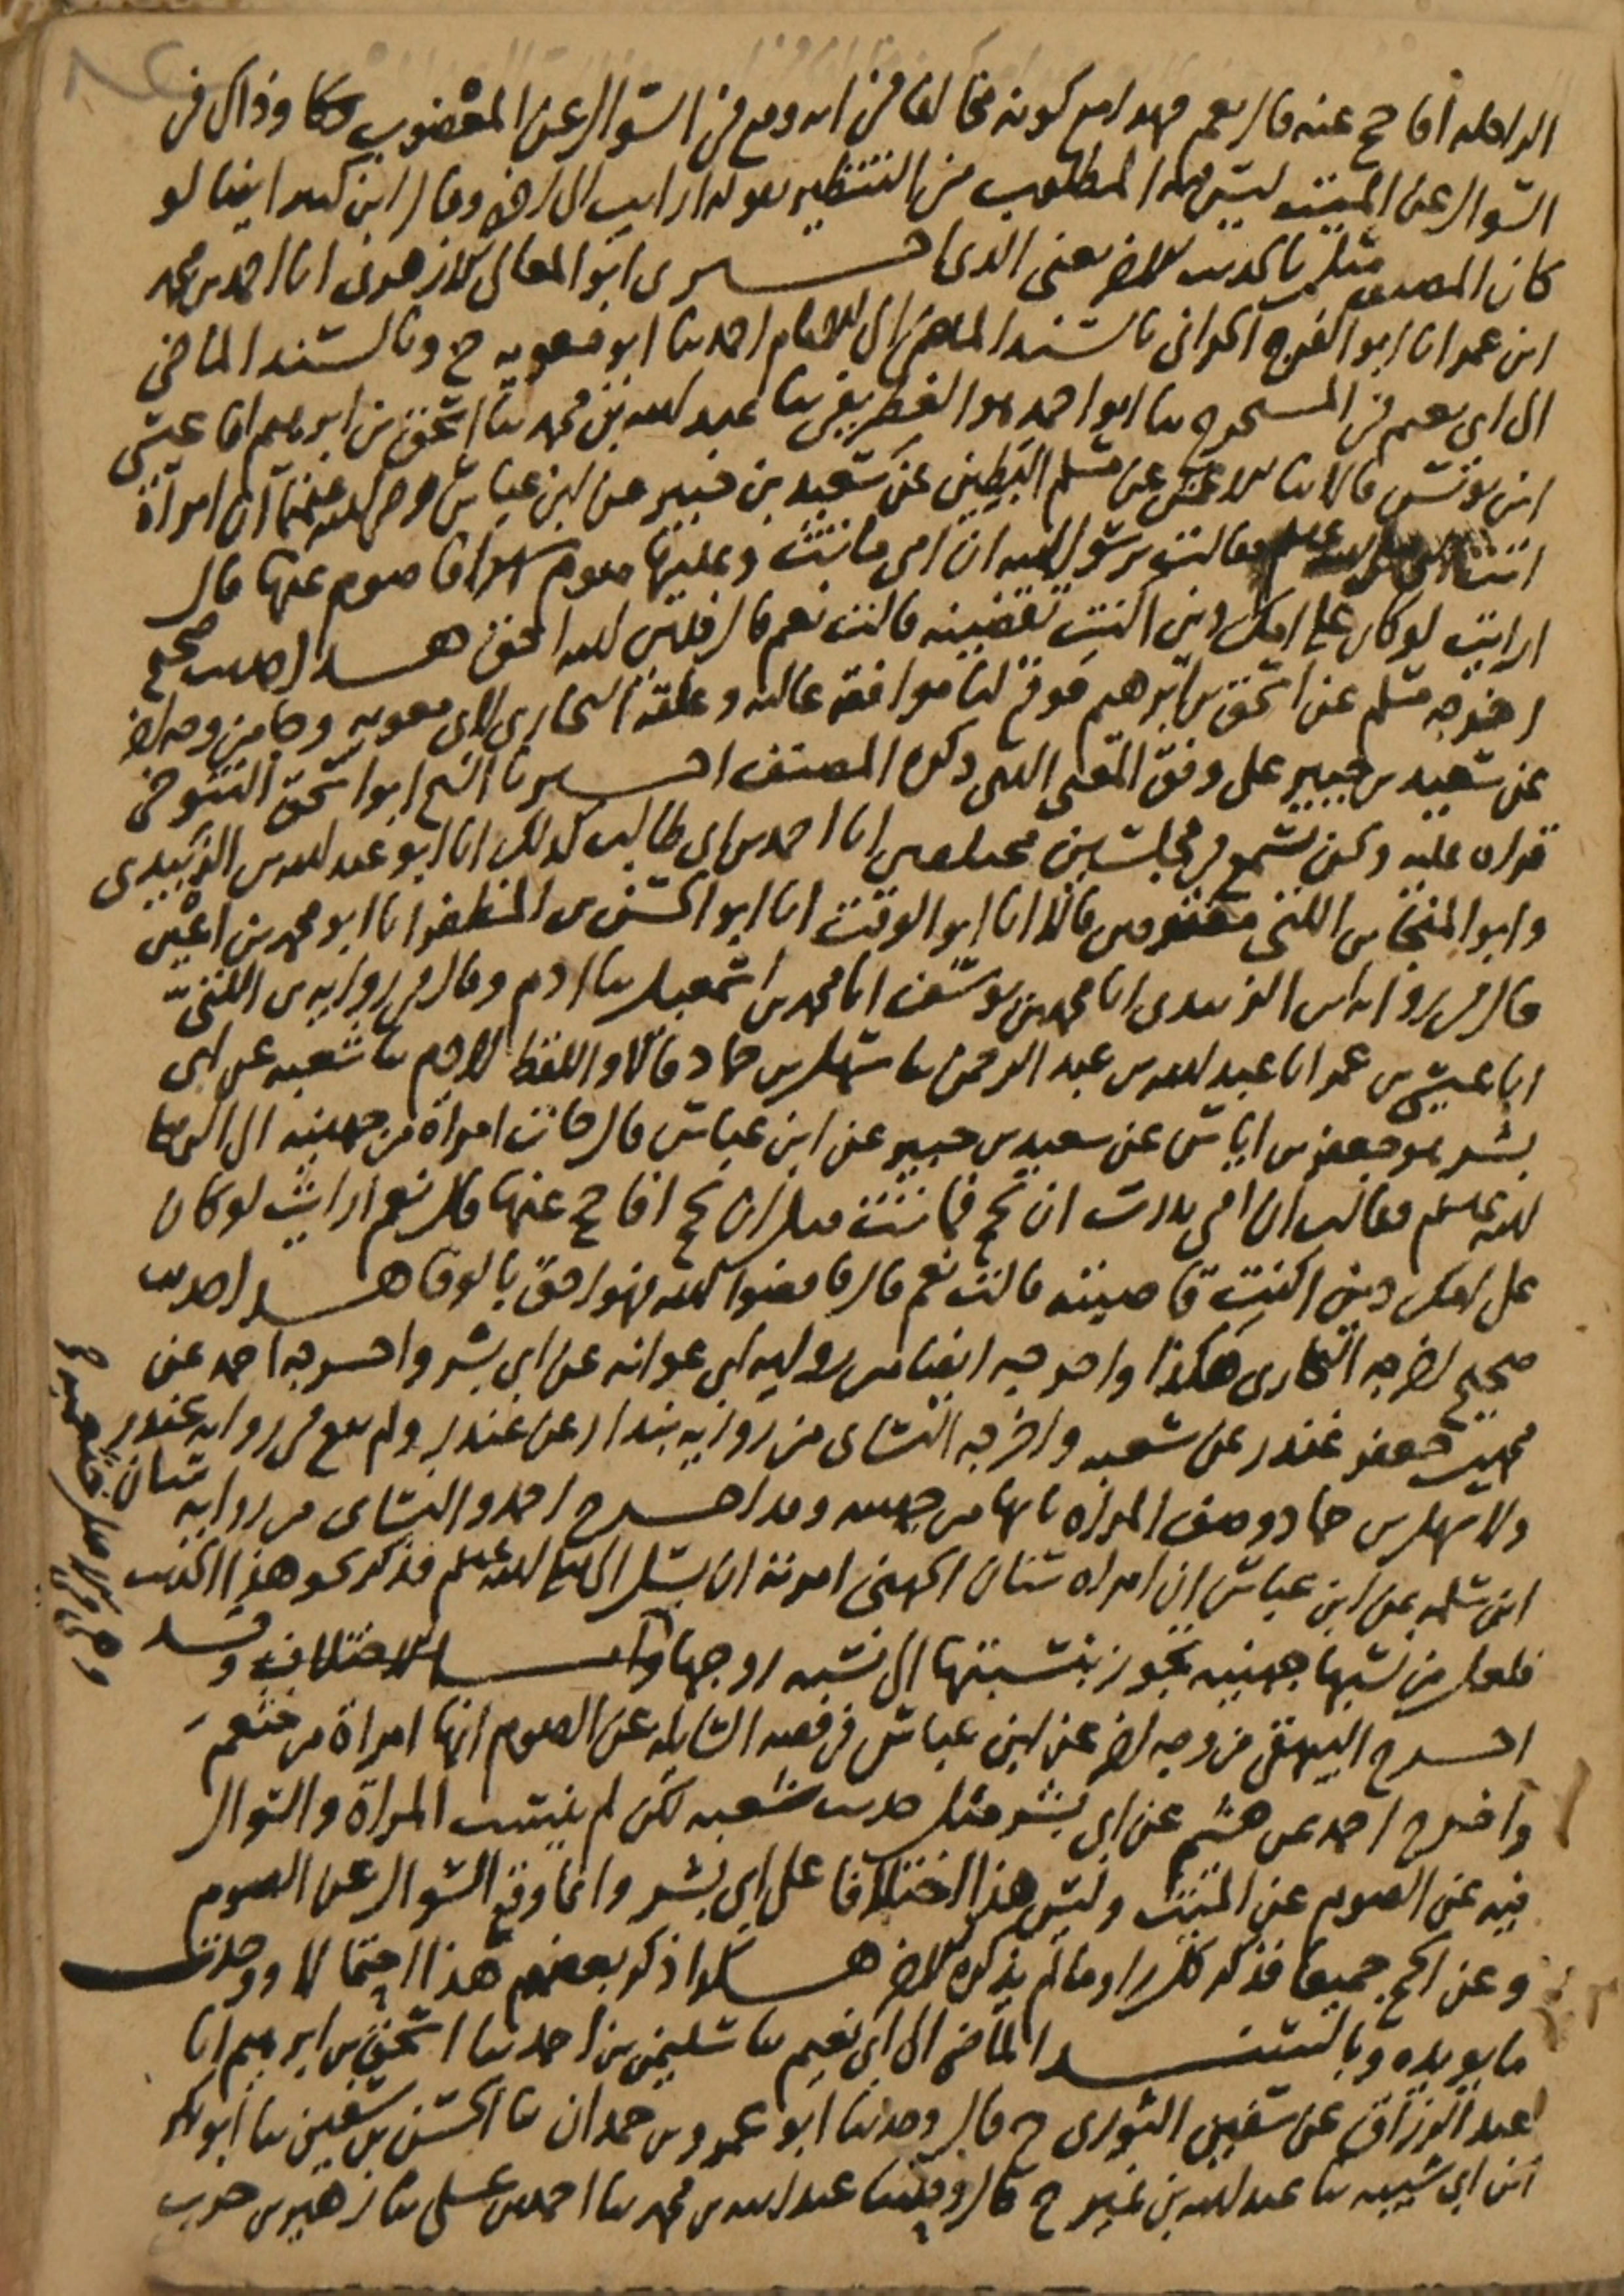 الراحلة أفأحج عنه قال نعم فهذا مع كونه مخالفا في انه وقع في السؤال عن المعضوب وذاك في
السؤال عن الميت ليس فيه المطلوب من التنظير بقوله ارايت الى اخره وقال ابن كثير ايضا لو
كان المصنف مثل بالحديث الاخر يعني الذي اخبرني ابو المعالي الازهري انا احمد بن محمد
ابن عمر انا ابو الفرج الحراني بالسند الماضي الى الامام احمد ثنا ابو معوية ح وبالسند الماضي
الى ابي نعيم في المستخرج ثنا ابو احمد هو الغطريفي ثنا عبد الله بن محمد ثنا اسحق بن ابرهيم انا عيسى
ابن يونس قالا ثنا الاعمش عن مسلم البطين عن سعيد بن جبير عن ابن عباس رضي الله عنهما ان امراة
اتت النبي صلى الله عليه وسلم فقالت يرسول الله ان امي ماتت وعليها صوم شهر افاصوم عنها قال
ارايت لو كان على امك دين اكنت تقضينه قالت نعم قال فدين الله احق هذا حديث صحيح
اخرجه مسلم عن اسحق بن ابرهيم فوقع لنا موافقة عالية وعلقه البخاري لابي معوية وجا من وجه اخر
عن سعيد بن جبير على وفق المعنى الذي ذكره المصنف اخبرنا الشيخ ابو اسحق التنوخي
قراة عليه ونحن نسمع في مجلسين مختلفين انا احمد بن ابي طالب كذلك انا ابو عبد الله بن الزبيدي
وابو المنجا بن اللتي مفترقين قالا انا ابو الوقت انا ابو الحسن بن المظفر انا ابو محمد بن اعين
قال في رواية ابن الزبيدي انا محمد بن يوسف انا محمد بن اسمعيل ثنا ادم وقال في رواية بن اللتي
انا عيسى بن عمر انا عبد الله بن عبد الرحمن ثنا سهل بن حماد قالا واللفظ لادم ثنا شعبة عن ابي
بشر هو جعفر بن اياس عن سعيد بن جبير عن ابن عباس قال جات امراة من جهينة الى النبي صلى
الله عليه وسلم فقالت ان امي نذرت ان تحج فماتت قبل ان تحج افاحج عنها قال نعم ارايت لو كان
على امك دين اكنت قاضيته قالت نعم قال فاقضوا الله فهو احق بالوفا هذا حديث
صحيح اخرجه البخاري هكذا واخرجه ايضا من رواية ابي عوانة عن ابي بشر واخرجه احمد عن
محمد بن جعفر غندر عن شعبة واخرجه النسائي من رواية بندار عن غندر ولم يقع في رواية غندر
ولا سهل بن حماد وصف المراة بانها من جهينة وقد اخرج احمد والنسائي من رواية سنان
ابن سلمة عن ابن عباس ان امراة سنان الجهني امرته ان يسل النبي صلى الله عليه وسلم فذكر نحو هذا الحديث
فلعل من نسبها جهنية تجوز بنسبتها الى نسبه زوجها الاختلاف وقد
اخرج البيهقي من وجه اخر عن ابن عباس في قصة السايلة عن الصوم انها امراة من خثعم
واخرج احمد عن هشيم عن ابي بشر مثل حديث شعبة لكن لم ينسب المراة والسوال
فيه عن الصوم عن الميت وليس هذا اختلافا على ابي بشر وانما وقع السوال عن الصوم
وعن الحج جميعا فذكر كل راو ما لم يذكره الاخر هكذا ذكر بعضهم هذا احتمالا ووجدت
ما يويده وبالسند الماضي الى ابي نعيم ثنا سليمن بن احمد ثنا اسحق بن ابرهيم انا
عبد الرزاق عن سفين الثوري ح قال وحدثنا ابو عمرو بن حمدان ثنا الحسن بن سفين ثنا ابو بكر
ابن ابي شيبة ثنا عبد الله بن نمير ح قال وحدثنا عبد الله بن محمد ثنا احمد بن علي ثنا زهير بن حرب